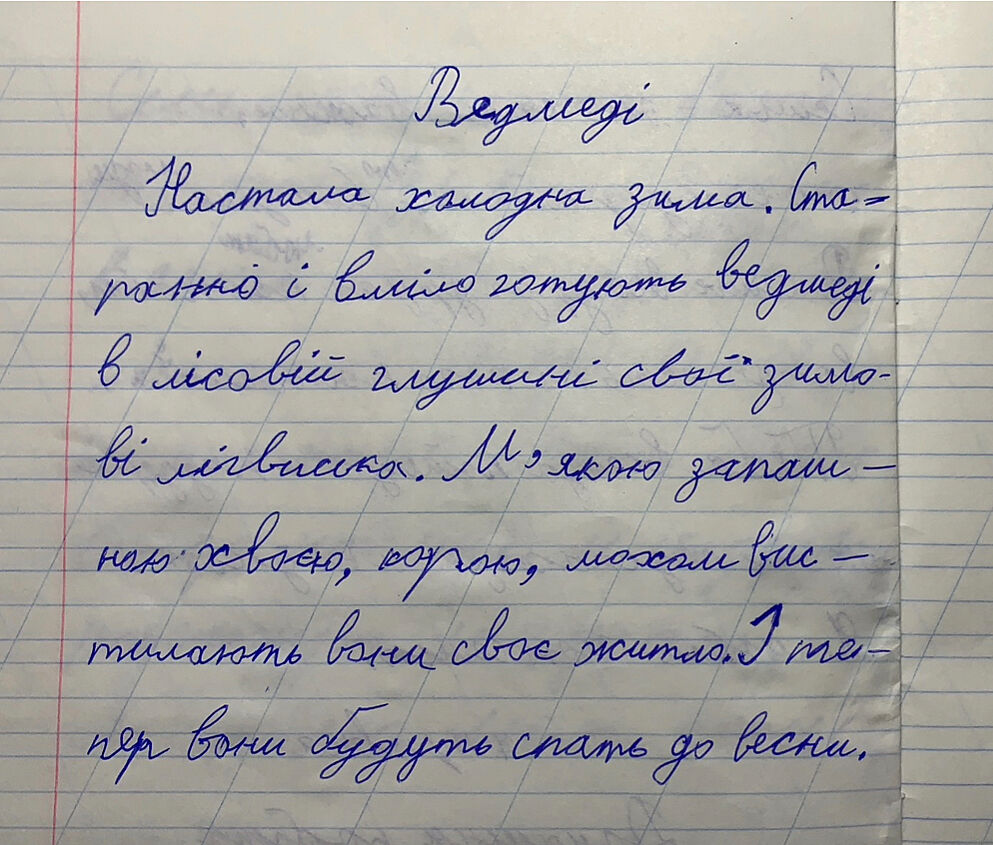 Ведмеді
Настала холодна зима. Ста=
ранно і вміло готують ведмеді
в лісовій глушині свої зимо-
ві лігвиська. М'якою запаш-
ною хвоєю, корою, мохом вис-
тилають вони своє житло. І те-
пер вони будуть спать до весни.